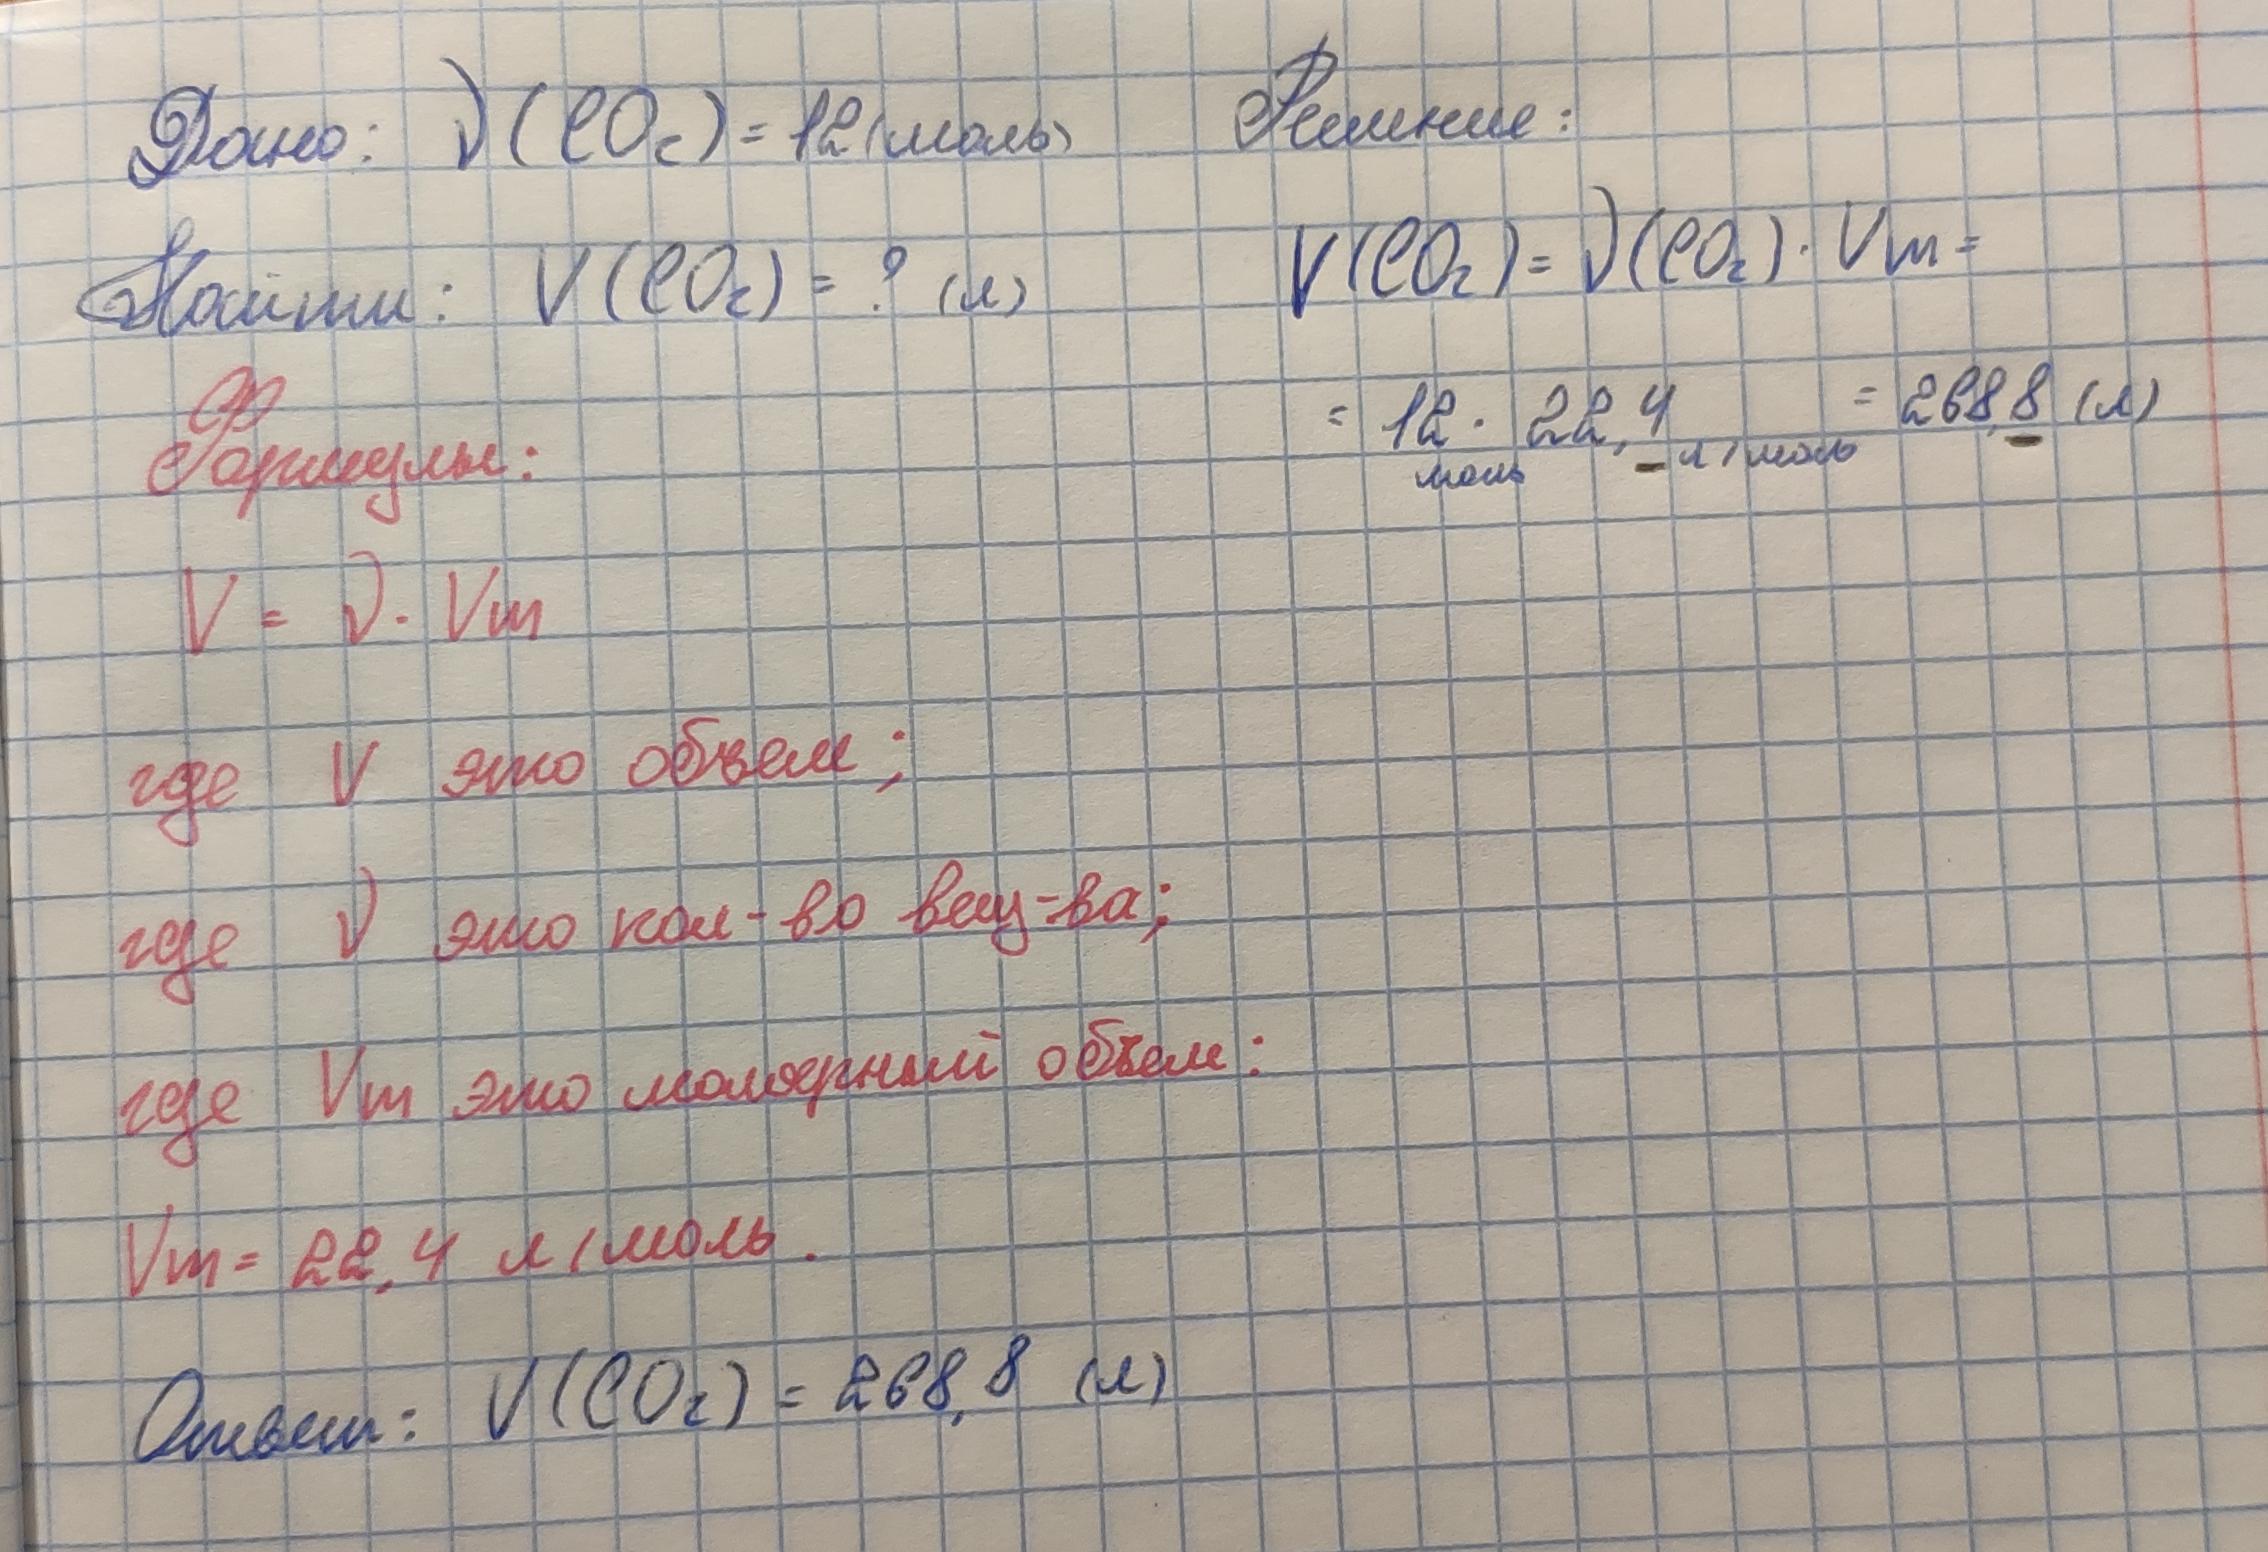 Дано: ν(CO₂) = 12 (моль)
Найти: V(CO₂) = ? (л)
Формулы:
V = ν · Vm
где V это объем;
где ν это кол-во вещ-ва;
где Vm это молярный объем:
Vm = 22,4 л/моль.
Решение:
V(CO₂) = ν(CO₂) · Vm =
= 12 моль · 22,4 л/моль = 268,8 (л)
Ответ: V(CO₂) = 268,8 (л)